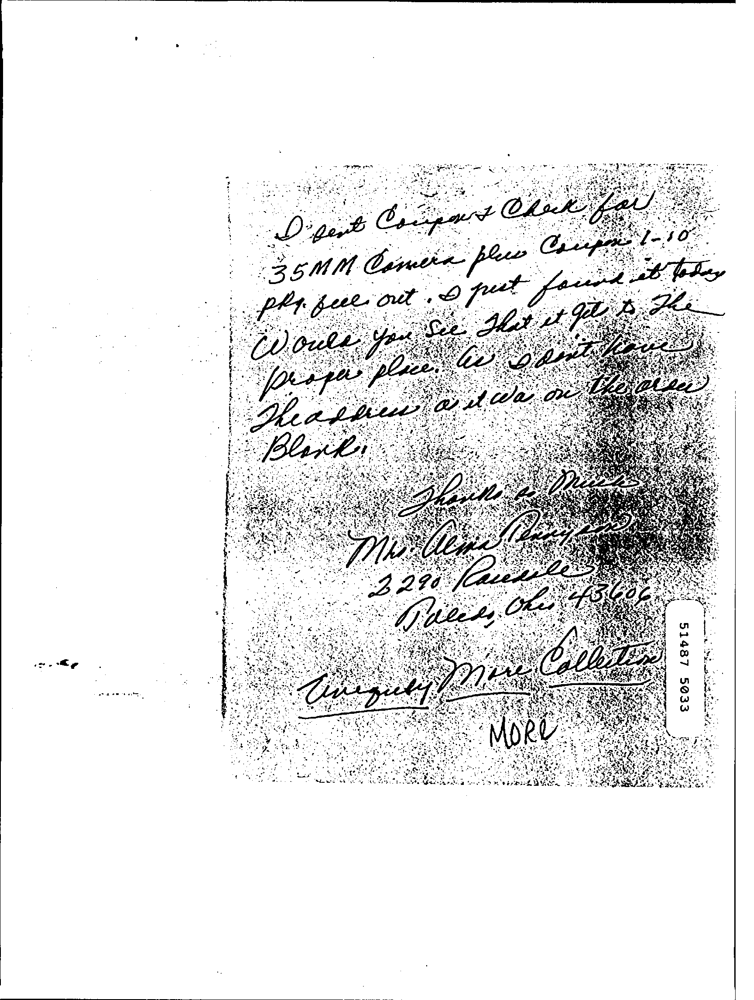 I sent Coupons & Check for
35MM Camera plus Coupon 1-10
pkg. fell out. I just found it today
Would you See That it gets to The
proper place. As I don't have
The address as it was on the order
Blank.
Thanks so Much
Mrs. Alma Tennyson
2290
Toledo, Ohio 43606
Uniquely More Collection
MORE
51487 5033